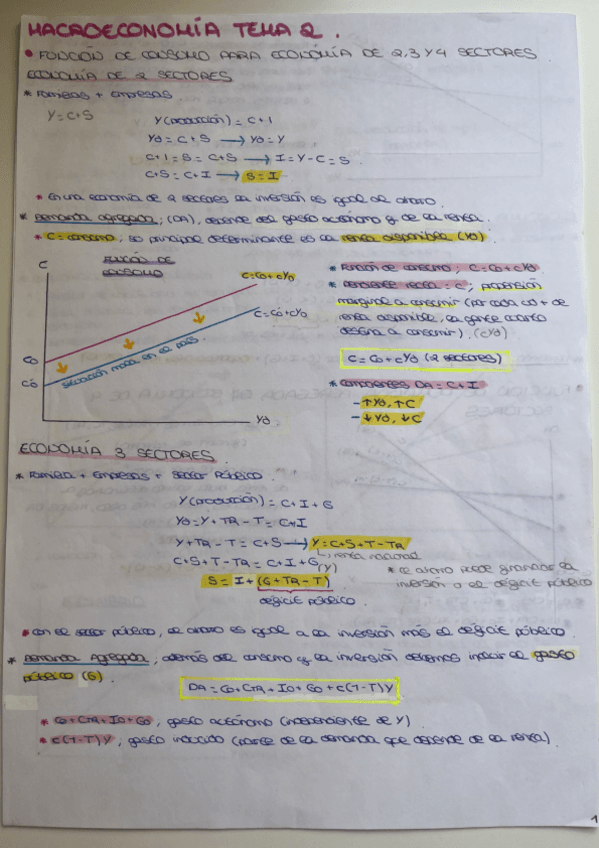 MACROECONOMÍA TEMA 2.
• FUNCIÓN DE CONSUMO PARA ECONOMÍA DE 2,3 Y 4 SECTORES.
ECONOMÍA DE 2 SECTORES
* Familias + Empresas
Y = C+S
Y (producción) = C+I
Yd = C+S → Yd = Y
C+I = S = C+S → I = Y-C = S
C+S = C+I → S = I
• En una economía de 2 sectores la inversión es igual al ahorro.
* Demanda agregada; (DA), depende del gasto autónomo y de la renta.
• C = consumo, su principal determinante es la renta disponible (Yd).
C
FUNCIÓN DE
CONSUMO
C = Co + cYd
C = Có + cYd
Co
Có
situación mala en el país.
Yd.
* Función de consumo; C = Co + cYd
* Pendiente recta = c; propensión
marginal a consumir (por cada ud + de
renta disponible, la gente cuanto
destina a consumir). (cYd)
C = Co + cYd (2 sectores)
* Componentes DA = C+I
- ↑Yd, ↑C
- ↓Yd, ↓C
ECONOMÍA 3 SECTORES.
* Familia + Empresas + Sector Público.
Y (producción) = C+I+G
Yd = Y + TR - T = C+I
Y + TR - T = C+S → Y = C+S+T-TR
renta nacional
(Y)
C+S+T-TR = C+I+G
S = I + (G+TR-T)
déficit público.
* el ahorro puede financiar la
inversión o el déficit público
• Con el sector público, el ahorro es igual a la inversión más el déficit público.
* Demanda Agregada; además del consumo y la inversión debemos incluir el gasto
público (G).
DA = Co + CTR + Io + Go + c(1-T)Y
* Co + CTR + Io + Go, gasto autónomo (independiente de Y).
* c(1-T)Y, gasto inducido (parte de la demanda que depende de la renta).
1